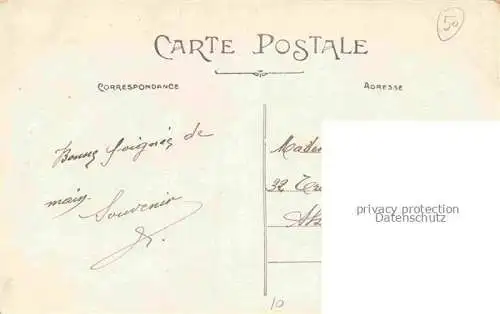 50
CARTE POSTALE
CORRESPONDANCE
ADRESSE
Bonnes poignées de
main
Souvenir
32
privacy protection
Datenschutz
10